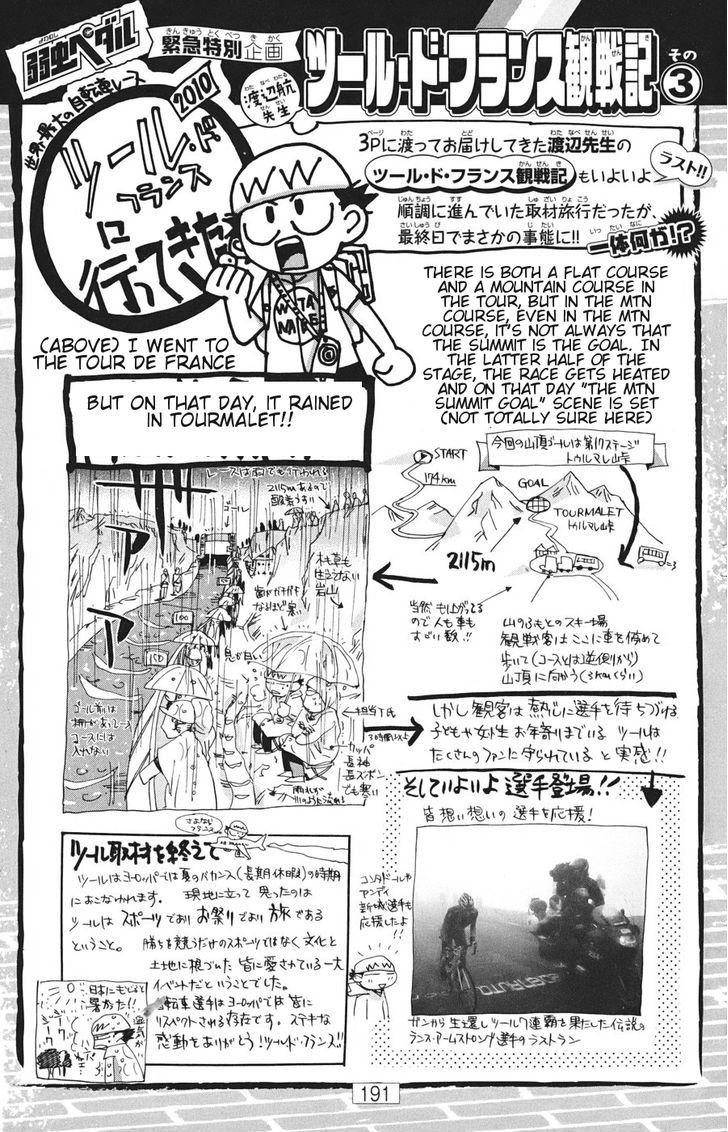 弱虫ペダル
緊急特別企画
渡辺航先生
ツール・ド・フランス観戦記
その3
世界最大の自転車レース
2010
ツール・ド
フランス
に
行ってきた
3Pに渡ってお届けしてきた渡辺先生の
ツール・ド・フランス観戦記もいよいよ
ラスト!!
順調に進んでいた取材旅行だったが、
最終日でまさかの事態に!!
一体何が!?
(ABOVE) I WENT TO
THE TOUR DE FRANCE
THERE IS BOTH A FLAT COURSE
AND A MOUNTAIN COURSE IN
THE TOUR, BUT IN THE MTN
COURSE, EVEN IN THE MTN
COURSE, IT'S NOT ALWAYS THAT
THE SUMMIT IS THE GOAL. IN
THE LATTER HALF OF THE
STAGE, THE RACE GETS HEATED
AND ON THAT DAY "THE MTN
SUMMIT GOAL" SCENE IS SET
(NOT TOTALLY SURE HERE)
BUT ON THAT DAY, IT RAINED
IN TOURMALET!!
今回の山頂ゴールは第17ステージ
トゥルマレ山峠
START
174km
GOAL
TOURMALET
トゥルマレ山峠
2115m
当然もり上がってる
ので人も車も
すごい数!!
山のふもとのスキー場
観戦客はここに車を停めて
歩いて(コースとは逆側から)
山頂に向かう(3kmくらい)
レースは雨でも行われる
2115mあるので
酸素うすい
ゴール
木も草も
生えてない
岩山
歯がガチガチ
なるほど寒い
息が白い
100
150
ゴール前は
柵があって
コースには
入れない
担当T氏
3時間以上
カッパ
長袖
長ズボン
でも寒い
しかし観客は熱心に選手を待ちつづける
子どもや女性お年寄りまでいる ツールは
たくさんのファンに守られている と実感!!
そしていよいよ選手登場!!
皆想い想いの選手を応援!
コンタドールや
アンディ
新城選手も
応援したよ
!!
ガンから生き還しツール7連覇を果たした伝説の
ランス・アームストロング選手のラストラン
さよなら
フランス
ツール取材を終えて
ツールはヨーロッパでは夏のバカンス(長期休暇)の時期
におこなわれます。 現地に立って思ったのは
ツールはスポーツであり お祭りであり 旅である
ということ。 勝ちを競うだけのスポーツではなく文化と
土地に根づいた 皆に愛されている一大
イベントだということでした。
自転車選手はヨーロッパでは皆に
リスペクトされる存在です。ステキな
感動をありがとう!ツール・ド・フランス!!
日本にもどると
暑かった!!
191